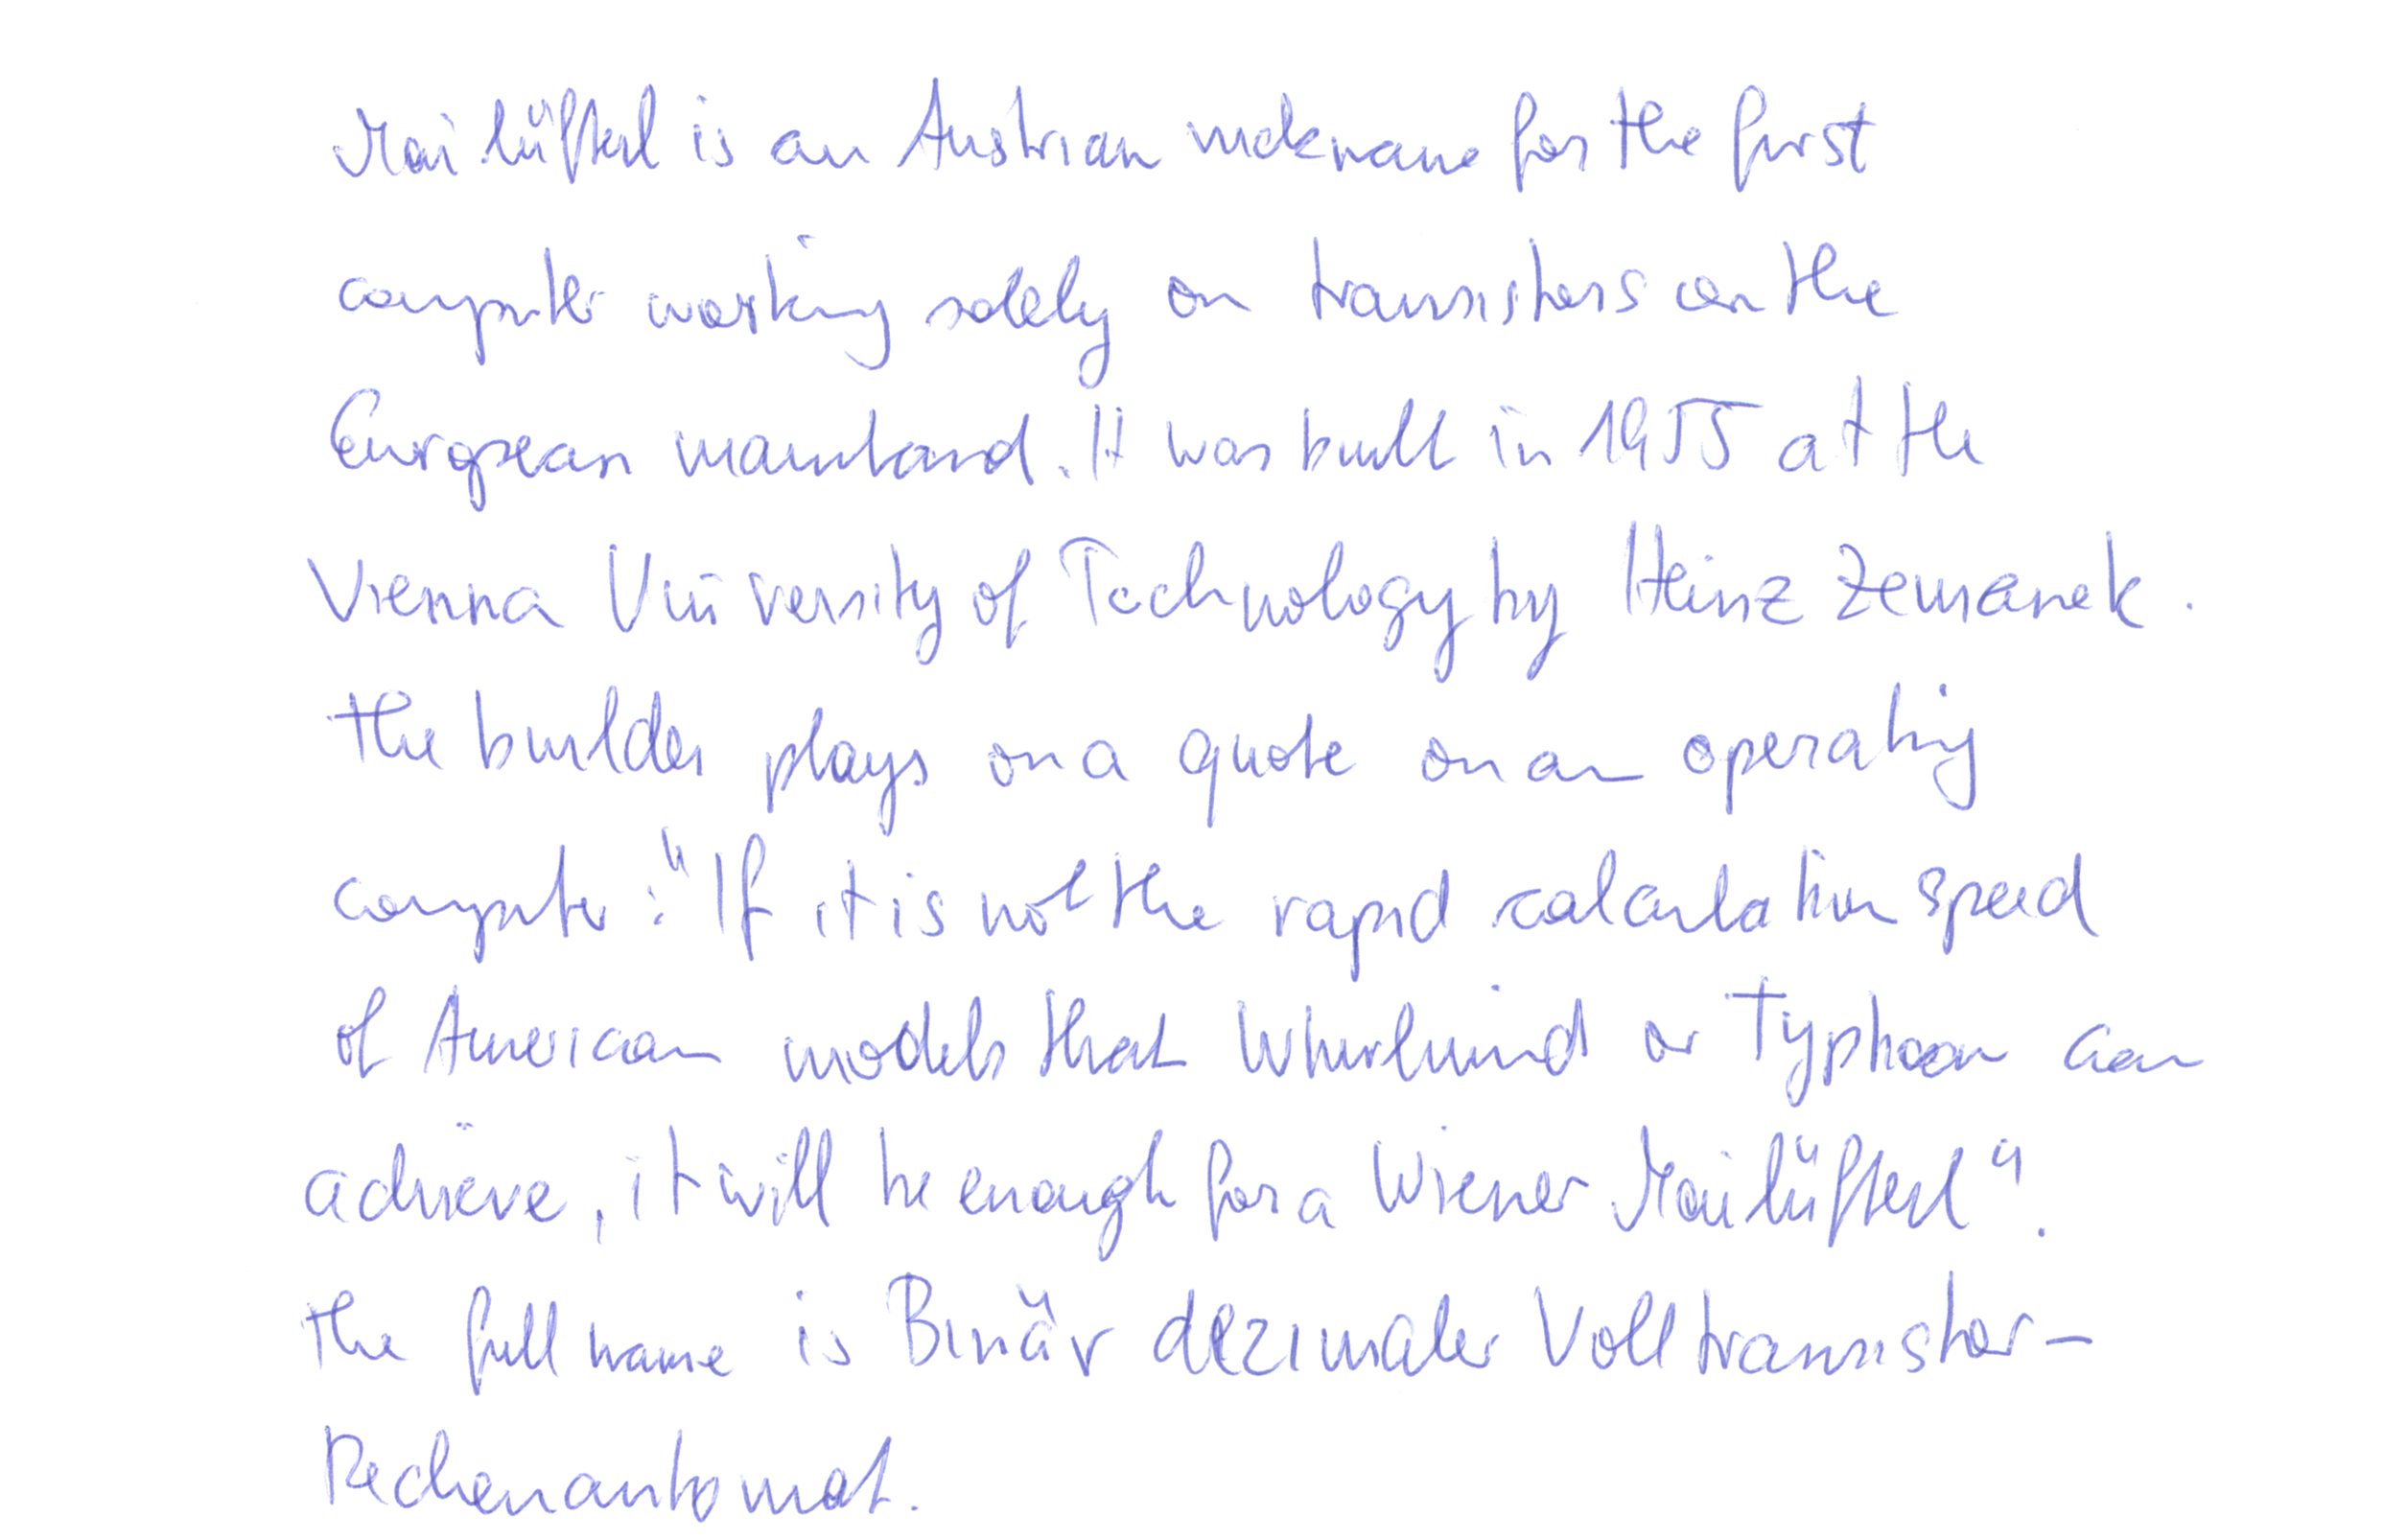 Mailüfterl is an Austrian nickname for the first
computer working solely on transistors on the
European mainland. It was built in 1955 at the
Vienna University of Technology by Heinz Zemanek.
the builder plays on a quote on an operating
computer: "If it is not the rapid calculation speed
of American models that Whirlwind or Typhoon can
achieve, it will be enough for a Wiener Mailüfterl".
the full name is Binär dezimaler Volltransistor-
Rechenautomat.